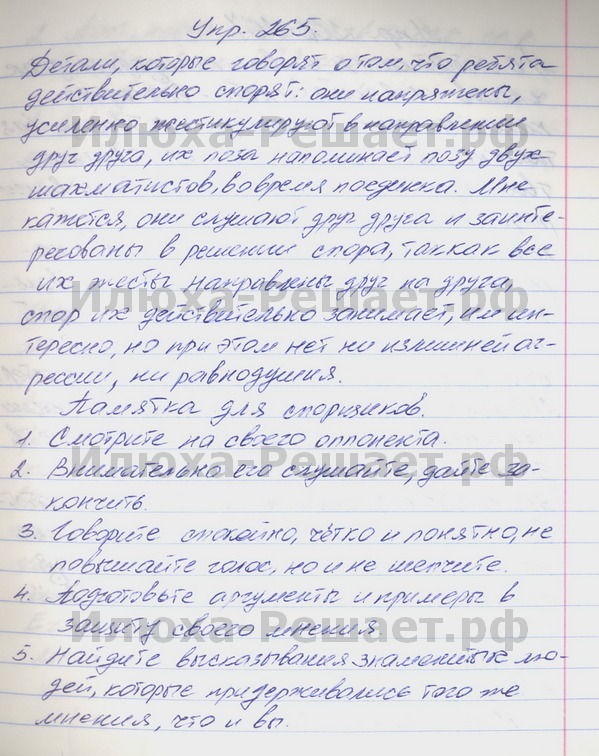 Упр. 265.
Детали, которые говорят о том, что ребята
действительно спорят: они напряжены,
усиленно жестикулируют в направлении
друг друга, их поза напоминает позу двух
шахматистов, во время поединка. Мне
кажется, они слушают друг друга и заинте-
ресованы в решении спора, так как все
их жесты направлены друг на друга,
спор их действительно занимает, им ин-
тересно, но при этом нет ни излишней аг-
рессии, ни равнодушия.
Памятка для спорщиков.
1. Смотрите на своего оппонента.
2. Внимательно его слушайте, дайте за-
кончить.
3. Говорите спокойно, чётко и понятно, не
повышайте голос, но и не шепчите.
4. Подготовьте аргументы и примеры в
защиту своего мнения.
5. Найдите высказывания знаменитых лю-
дей, которые придерживались того же
мнения, что и вы.
Илюха-Решает.рф
Илюха-Решает.рф
Илюха-Решает.рф
Илюха-Решает.рф